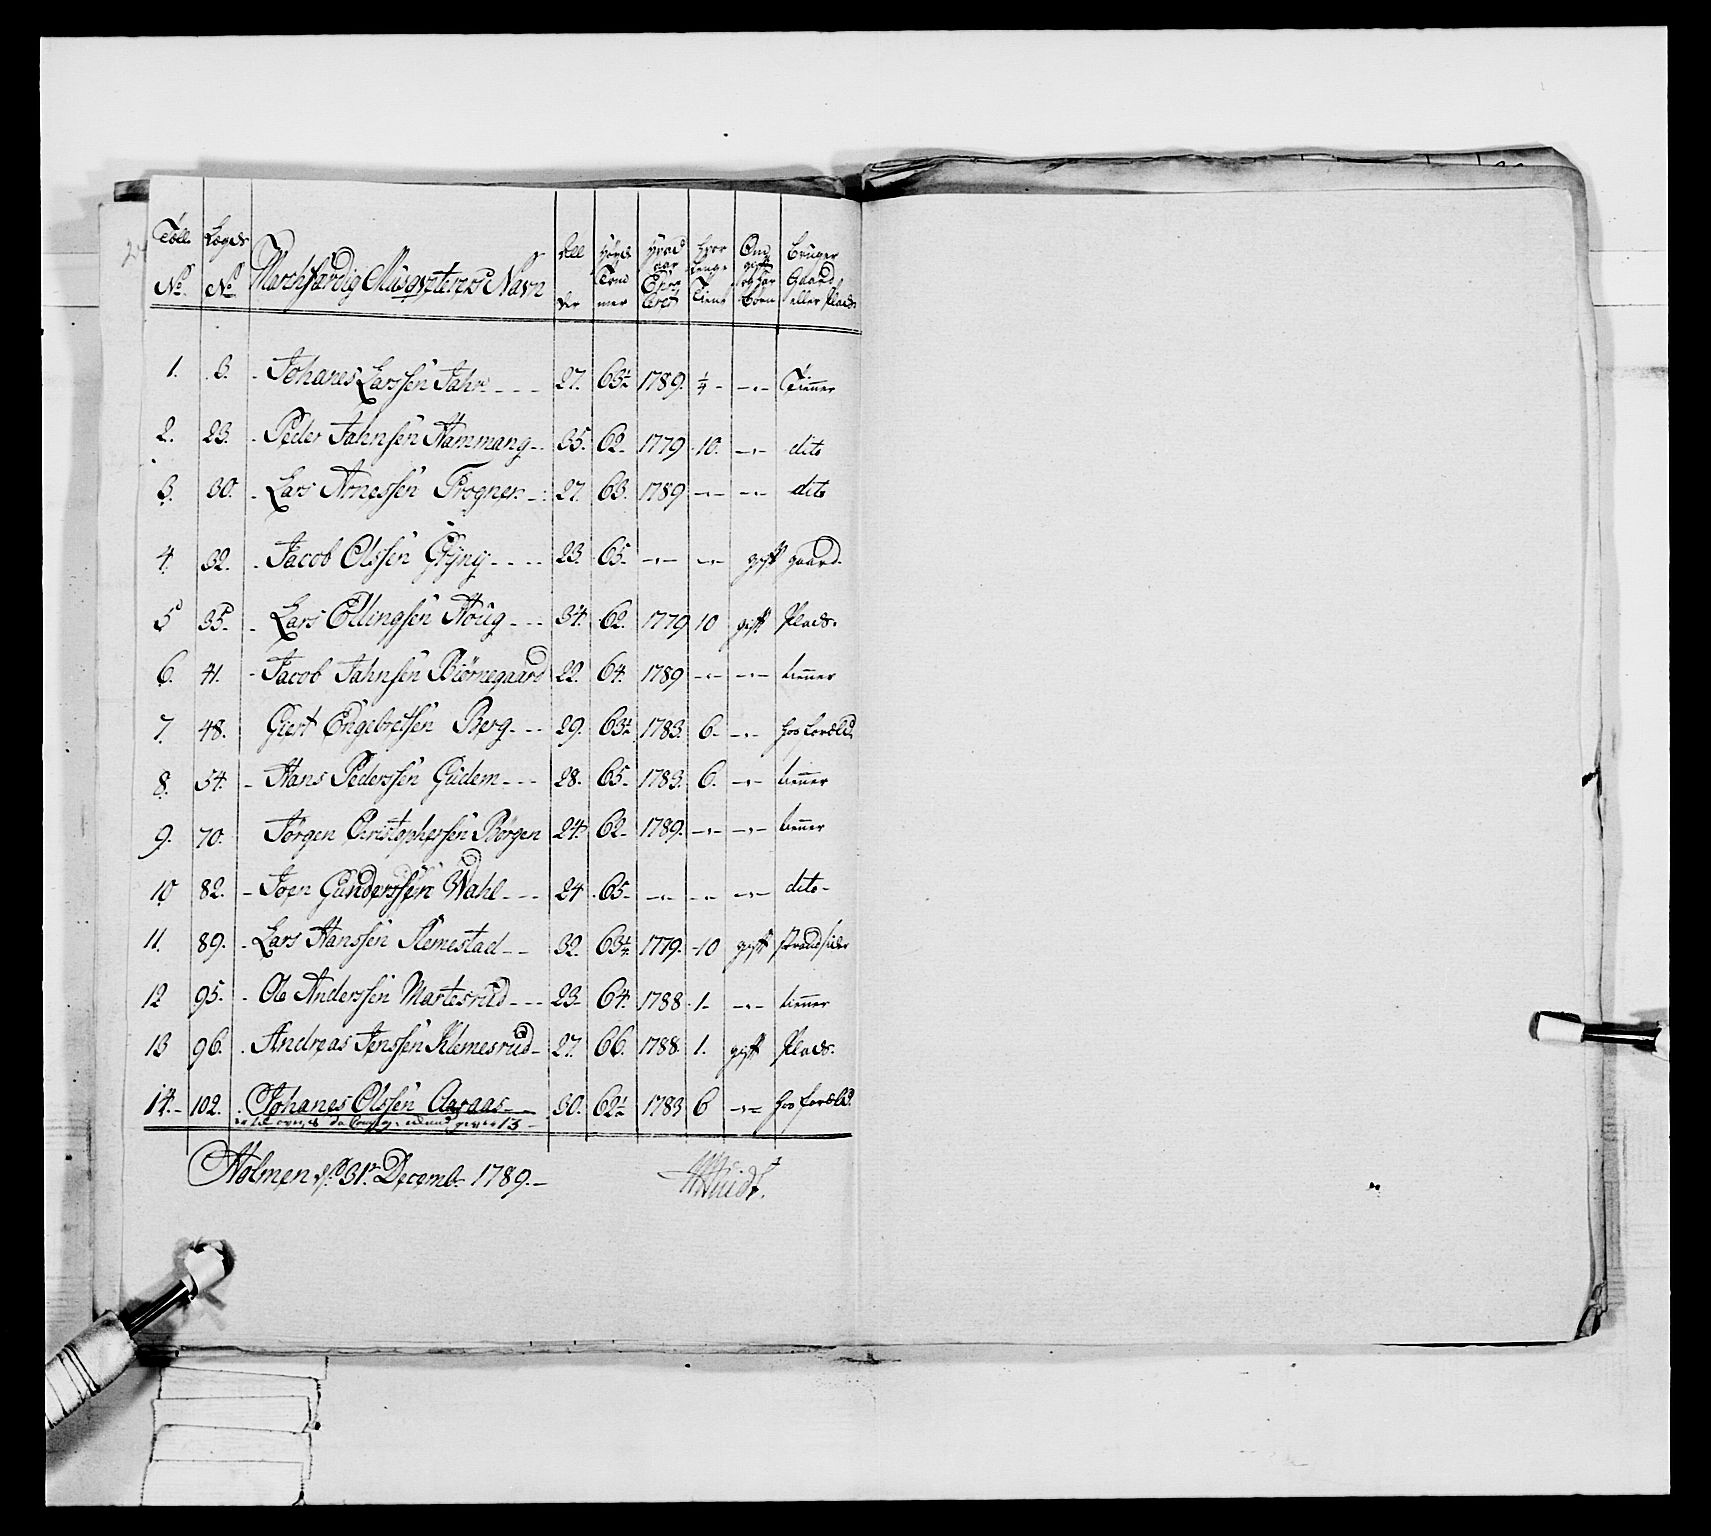 Tall No Lægds No Marchfærdig Musqveterers Navn All der Høyde Tom mer Hvad aar Enro leret Hvor længe Tient Om gift og har Børn Bruger Gaard eller Plads
1. 3. - Johanes Larssen Jahr --- 27. 63½ 1789. ¼ - -„- Tienner
2. 23. - Peder Jahnsen Hammang - 35. 62 - 1779 10. -„- dito
3. 30. - Lars Arnessen Frogner - 27. 63. 1789 -„- -„- dito
4. 32. - Jacob Olssen --- 23. 65 - -„- -„- gift gaard.
5 35 - - Lars Ellingsen Houg --- 34. 62. 1779 10 gift Plads.
6. 41. - Jacob Jahnsen Biørnegaard 22. 64. 1789 -„- -„- tienner
7. 48. Giert Engebretsen Berg -- 29. 63½ 1783. 6 - -„- hos foræld.
8. 54. - Hans Pederssen Gudem --- 28. 65 - 1783. 6. -„- tienner
9. 70. Jørgen Christophersen Borgen 24. 62 - 1789. -„- -„- tienner
10 82. - Joen Gunderssen Wahl --- 24 65 - -„- -„- -„- dito -
11. 89. - Lars Hanssen Slemestad -- 32. 63¼ 1779. 10 gift strandsider
12 95. - Ole Anderssen Martesrud --- 23 - 64. 1788 1 - -„- tienner
13 96. - Andreas Jenssen Klemesrud - 27. 66. 1788 1. gift Plads.
14. - 102. Johanes Olssen Aaraas -- 30. 62½ 1783 6 -„- hos foræld.
13 -
Holmen d. 31te Decemb. 1789. -